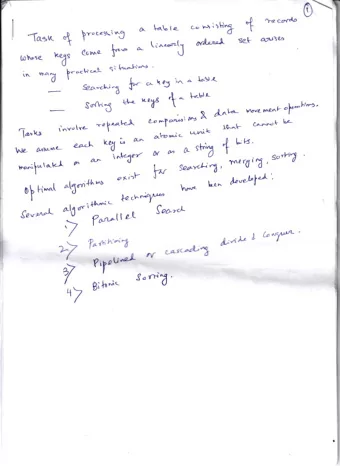 1
Task of processing a table consisting of records
whose keys come from a linearly ordered set arises
in many practical situations.
— Searching for a key in a table
— Sorting the keys of a table
Tasks involve repeated comparisions & data movement operations.
We assume each key is an atomic unit that cannot be
manipulated as an integer or as a string of bits.
Optimal algorithms exist for searching, merging, sorting.
Several algorithmic techniques have been developed:
1) Parallel Search
2) Partitioning
3) Pipelined or cascading divide & conquer.
4) Bitonic Sorting.